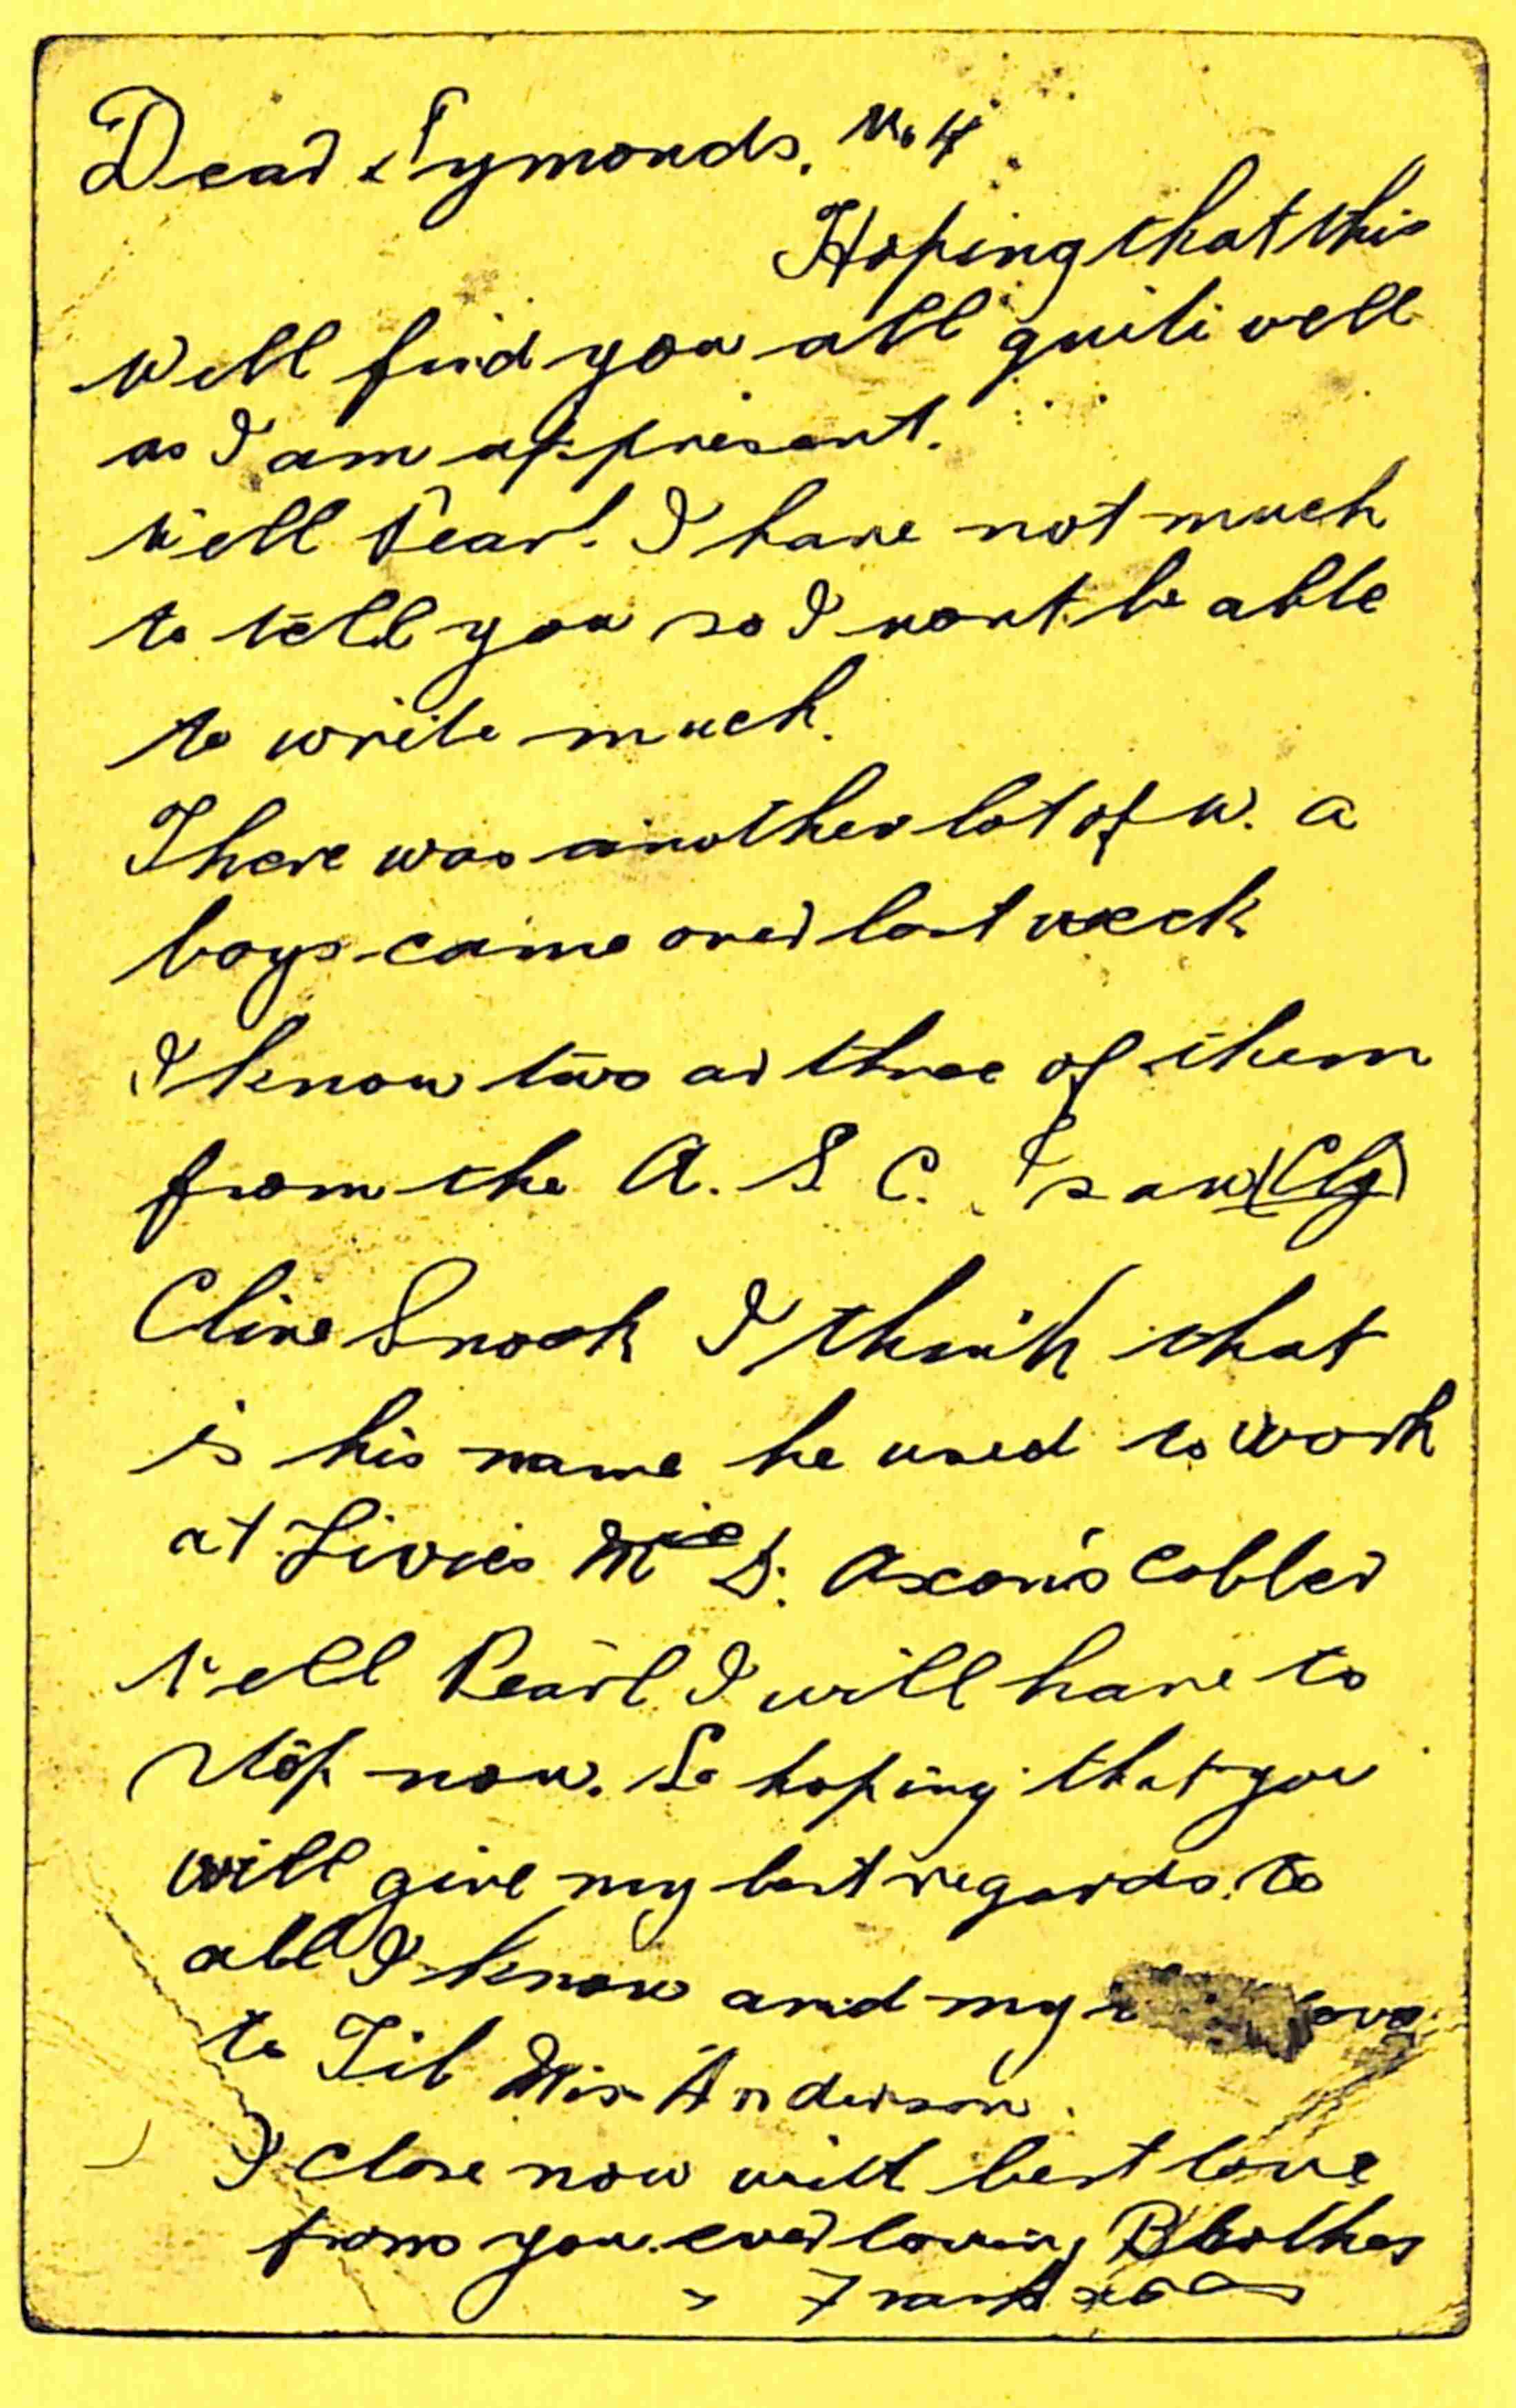 Dear Symonds. No 4
Hoping that this
will find you all quite well
as I am at present.
Well Pearl. I have not much
to tell you so I wont be able
to write much.
There was another lot of W. A
boys came over last week
I know two or three of them
from the A. S C. I saw (Cly)
Clive Snook I think that
is his name he used to work
at Livies S. Axon's Cobbler
Well Pearl I will have to
stop now. So hoping that you
will give my best regards to
all I know and my love
to Tib Mis Anderson.
I close now with best love
from your ever loving Brother
Frank